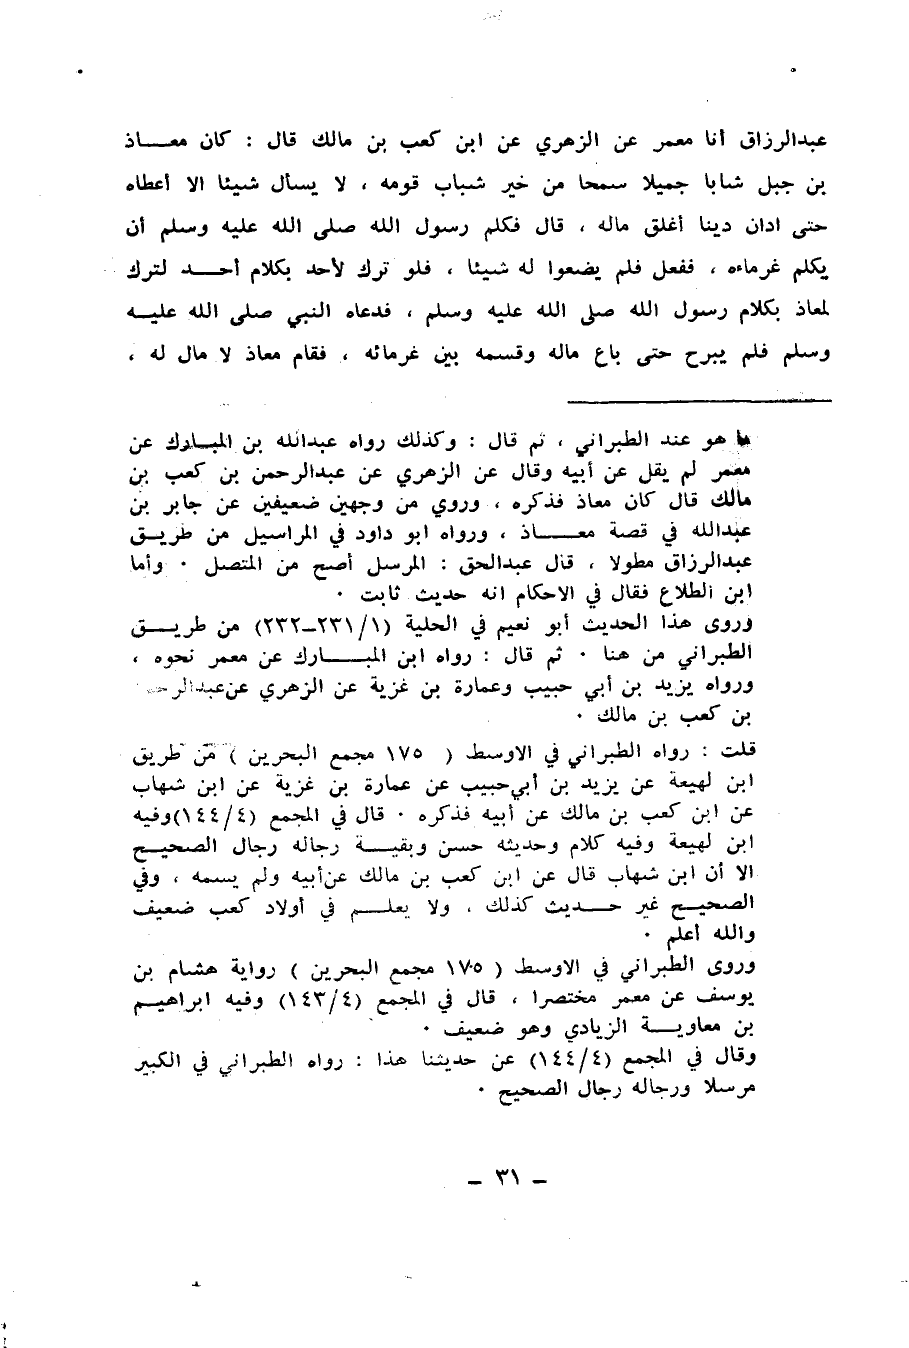 عبدالرزاق أنا معمر عن الزهري عن ابن كعب بن مالك قال : كان معـــاذ
بن جبل شابا جميلا سمحا من خير شباب قومه ، لا يسأل شيئا الا أعطاه
حتى ادان دينا أغلق ماله ، قال فكلم رسول الله صلى الله عليه وسلم أن
يكلم غرماءه ، ففعل فلم يضعوا له شيئا ، فلو ترك لأحد بكلام أحـــد لترك
لمعاذ بكلام رسول الله صلى الله عليه وسلم ، فدعاه النبي صلى الله عليــه
وسلم فلم يبرح حتى باع ماله وقسمه بين غرمائه ، فقام معاذ لا مال له ،
ما هو عند الطبراني ، ثم قال : وكذلك رواه عبدالله بن المبـارك عن
معمر لم يقل عن أبيه وقال عن الزهري عن عبدالرحمن بن كعب بن
مالك قال كان معاذ فذكره ، وروي من وجهين ضعيفين عن جابر بن
عبدالله في قصة معـــاذ ، ورواه ابو داود في المراسيل من طريــق
عبدالرزاق مطولا ، قال عبدالحق : المرسل أصح من المتصل ٠ وأما
ابن الطلاع فقال في الاحكام انه حديث ثابت ٠
وروى هذا الحديث أبو نعيم في الحلية (١/ ٢٣١–٢٣٢) من طريــق
الطبراني من هنا ٠ ثم قال : رواه ابن المبـــارك عن معمر نحوه ،
ورواه يزيد بن أبي حبيب وعمارة بن غزية عن الزهري عن عبدالرحمن
بن كعب بن مالك ٠
قلت : رواه الطبراني في الاوسط ( ١٧٥ مجمع البحرين ) من طريق
ابن لهيعة عن يزيد بن أبي حبيب عن عمارة بن غزية عن ابن شهاب
عن ابن كعب بن مالك عن أبيه فذكره ٠ قال في المجمع (٤/ ١٤٤) وفيه
ابن لهيعة وفيه كلام وحديثه حسن وبقيــة رجاله رجال الصحيــح
الا أن ابن شهاب قال عن ابن كعب بن مالك عن أبيه ولم يسمه ، وفي
الصحيــح غير حــديث كذلك ، ولا يعلــم في أولاد كعب ضعيف
والله أعلم ٠
وروى الطبراني في الاوسط ( ١٧٥ مجمع البحرين ) رواية هشام بن
يوسف عن معمر مختصرا ، قال في المجمع (٤/ ١٤٣) وفيه ابراهيــم
بن معاويــة الزيادي وهو ضعيف ٠
وقال في المجمع (٤/ ١٤٤) عن حديثنا هذا : رواه الطبراني في الكبير
مرسلا ورجاله رجال الصحيح ٠
– ٣١ –